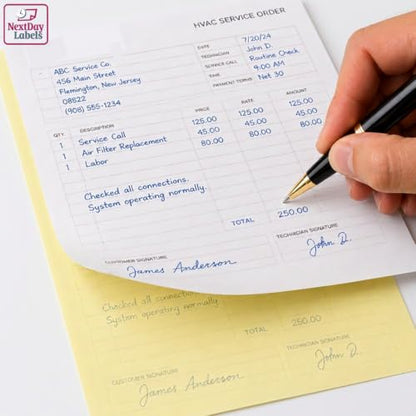 NextDay
Labels
HVAC SERVICE ORDER
ABC Service Co.
456 Main Street
Flemington, New Jersey
08822
(908) 555-1234
DATE 7/20/24
TECHNICIAN John D.
SERVICE CALL Routine Check
9:00 AM
PAYMENT TERMS Net 30
QTY DESCRIPTION PRICE RATE AMOUNT
1 Service Call 125.00 125.00 125.00
1 Air Filter Replacement 45.00 45.00 45.00
1 Labor 80.00 80.00 80.00
Checked all connections.
System operating normally.
TOTAL 250.00
CUSTOMER SIGNATURE TECHNICIAN SIGNATURE
James Anderson John D.
Checked all connections
System operating normally
TOTAL 250.00
CUSTOMER SIGNATURE TECHNICIAN SIGNATURE
James Anderson John D.